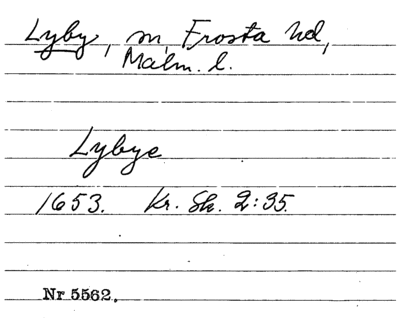 Lyby, sn, Frosta hd,
Malm. l.
Lybye
1653. Kr. Sk. 2:35.
Nr 5562.